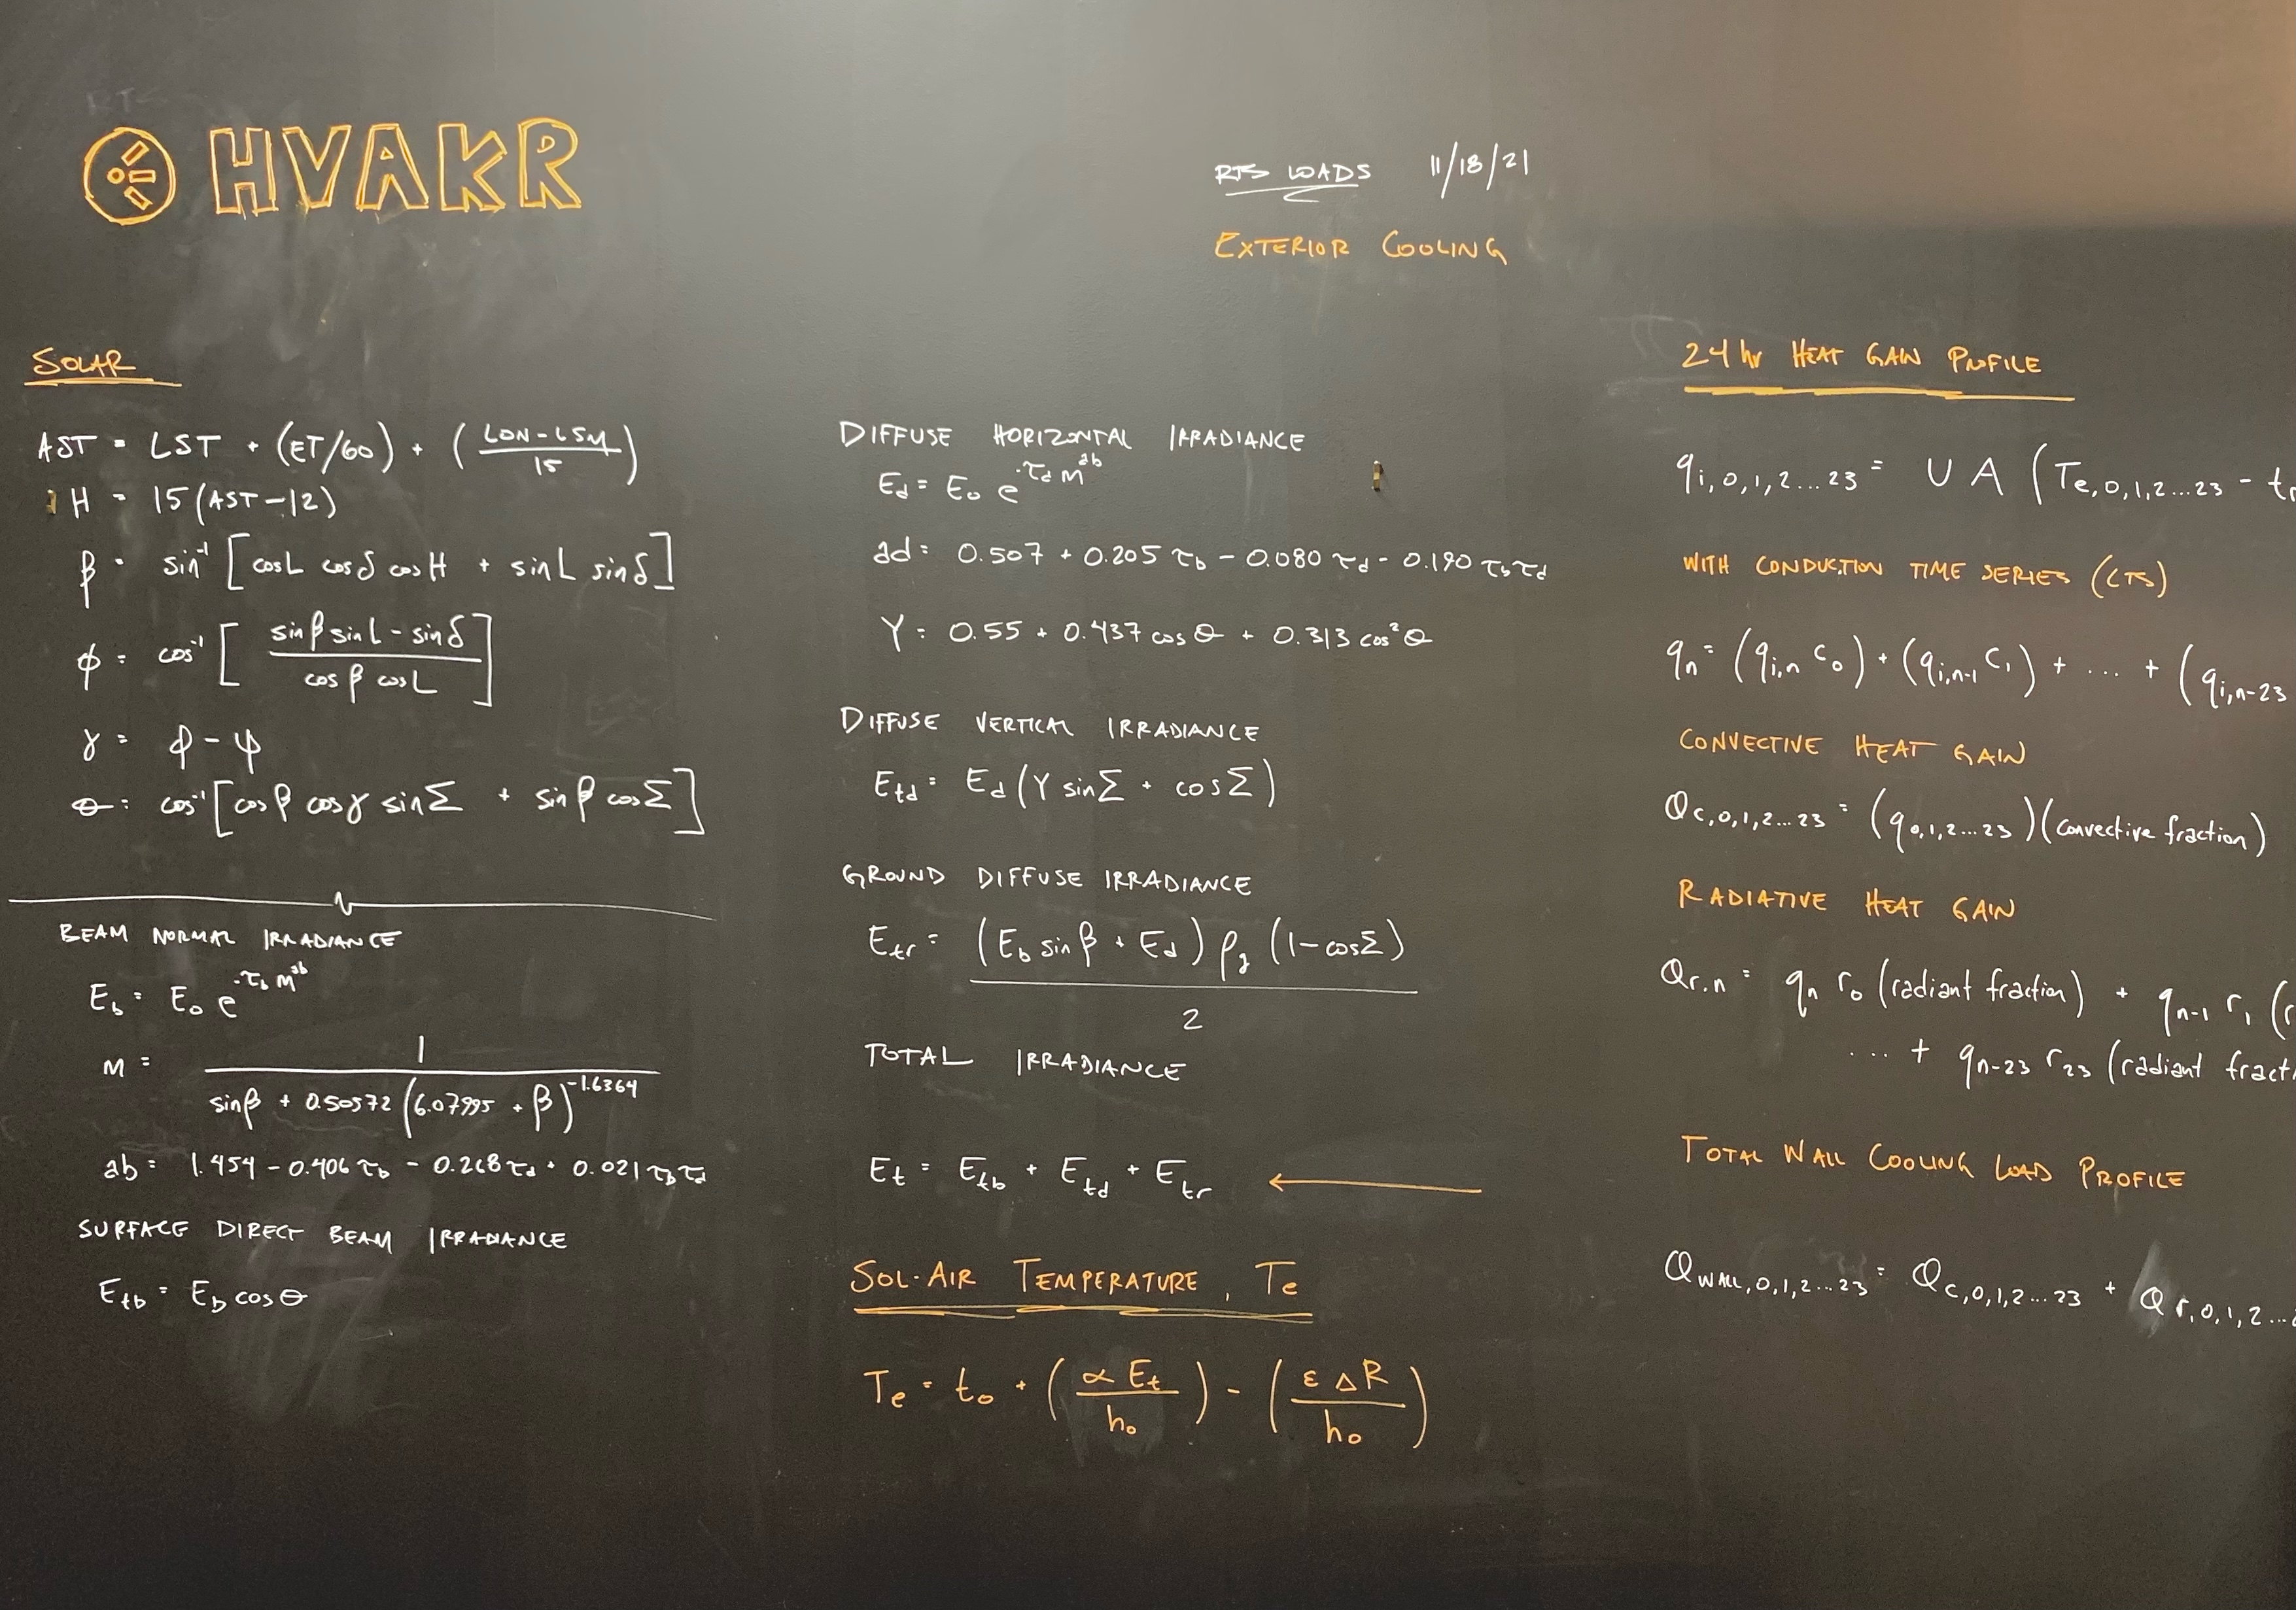 HVAKR
RTS LOADS 11/18/21
EXTERIOR COOLING
SOLAR
AST = LST + (ET/60) + (LON-LSM / 15)
H = 15(AST-12)
β = sin⁻¹ [cosL cosδ cosH + sinL sinδ]
ϕ = cos⁻¹ [sinβ sinL - sinδ / cosβ cosL]
γ = ϕ - ψ
θ = cos⁻¹ [cosβ cosγ sinΣ + sinβ cosΣ]
BEAM NORMAL IRRADIANCE
E_b = E_o e^-τ_b m^ab
m = 1 / sinβ + 0.50572 (6.07995 + β)^-1.6364
ab = 1.454 - 0.406 τ_b - 0.268 τ_d + 0.021 τ_b τ_d
SURFACE DIRECT BEAM IRRADIANCE
E_tb = E_b cosθ
DIFFUSE HORIZONTAL IRRADIANCE
E_d = E_o e^-τ_d m^ab
ad = 0.507 + 0.205 τ_b - 0.080 τ_d - 0.190 τ_b τ_d
Y = 0.55 + 0.437 cosθ + 0.313 cos²θ
DIFFUSE VERTICAL IRRADIANCE
E_td = E_d (Y sinΣ + cosΣ)
GROUND DIFFUSE IRRADIANCE
E_tr = (E_b sinβ + E_d) ρ_g (1-cosΣ) / 2
TOTAL IRRADIANCE
E_t = E_tb + E_td + E_tr
SOL-AIR TEMPERATURE, Te
T_e = t_o + (α E_t / h_o) - (ε ΔR / h_o)
24 hr HEAT GAIN PROFILE
q_i,0,1,2...23 = U A (T_e,0,1,2...23 - t_r
WITH CONDUCTION TIME SERIES (CTS)
q_n = (q_i,n c_0) + (q_i,n-1 c_1) + ... + (q_i,n-23
CONVECTIVE HEAT GAIN
Q_c,0,1,2...23 = (q_0,1,2...23)(convective fraction)
RADIATIVE HEAT GAIN
Q_r,n = q_n r_0 (radiant fraction) + q_n-1 r_1 (r
... + q_n-23 r_23 (radiant fract
TOTAL WALL COOLING LOAD PROFILE
Q_WALL,0,1,2...23 = Q_c,0,1,2...23 + Q_r,0,1,2...